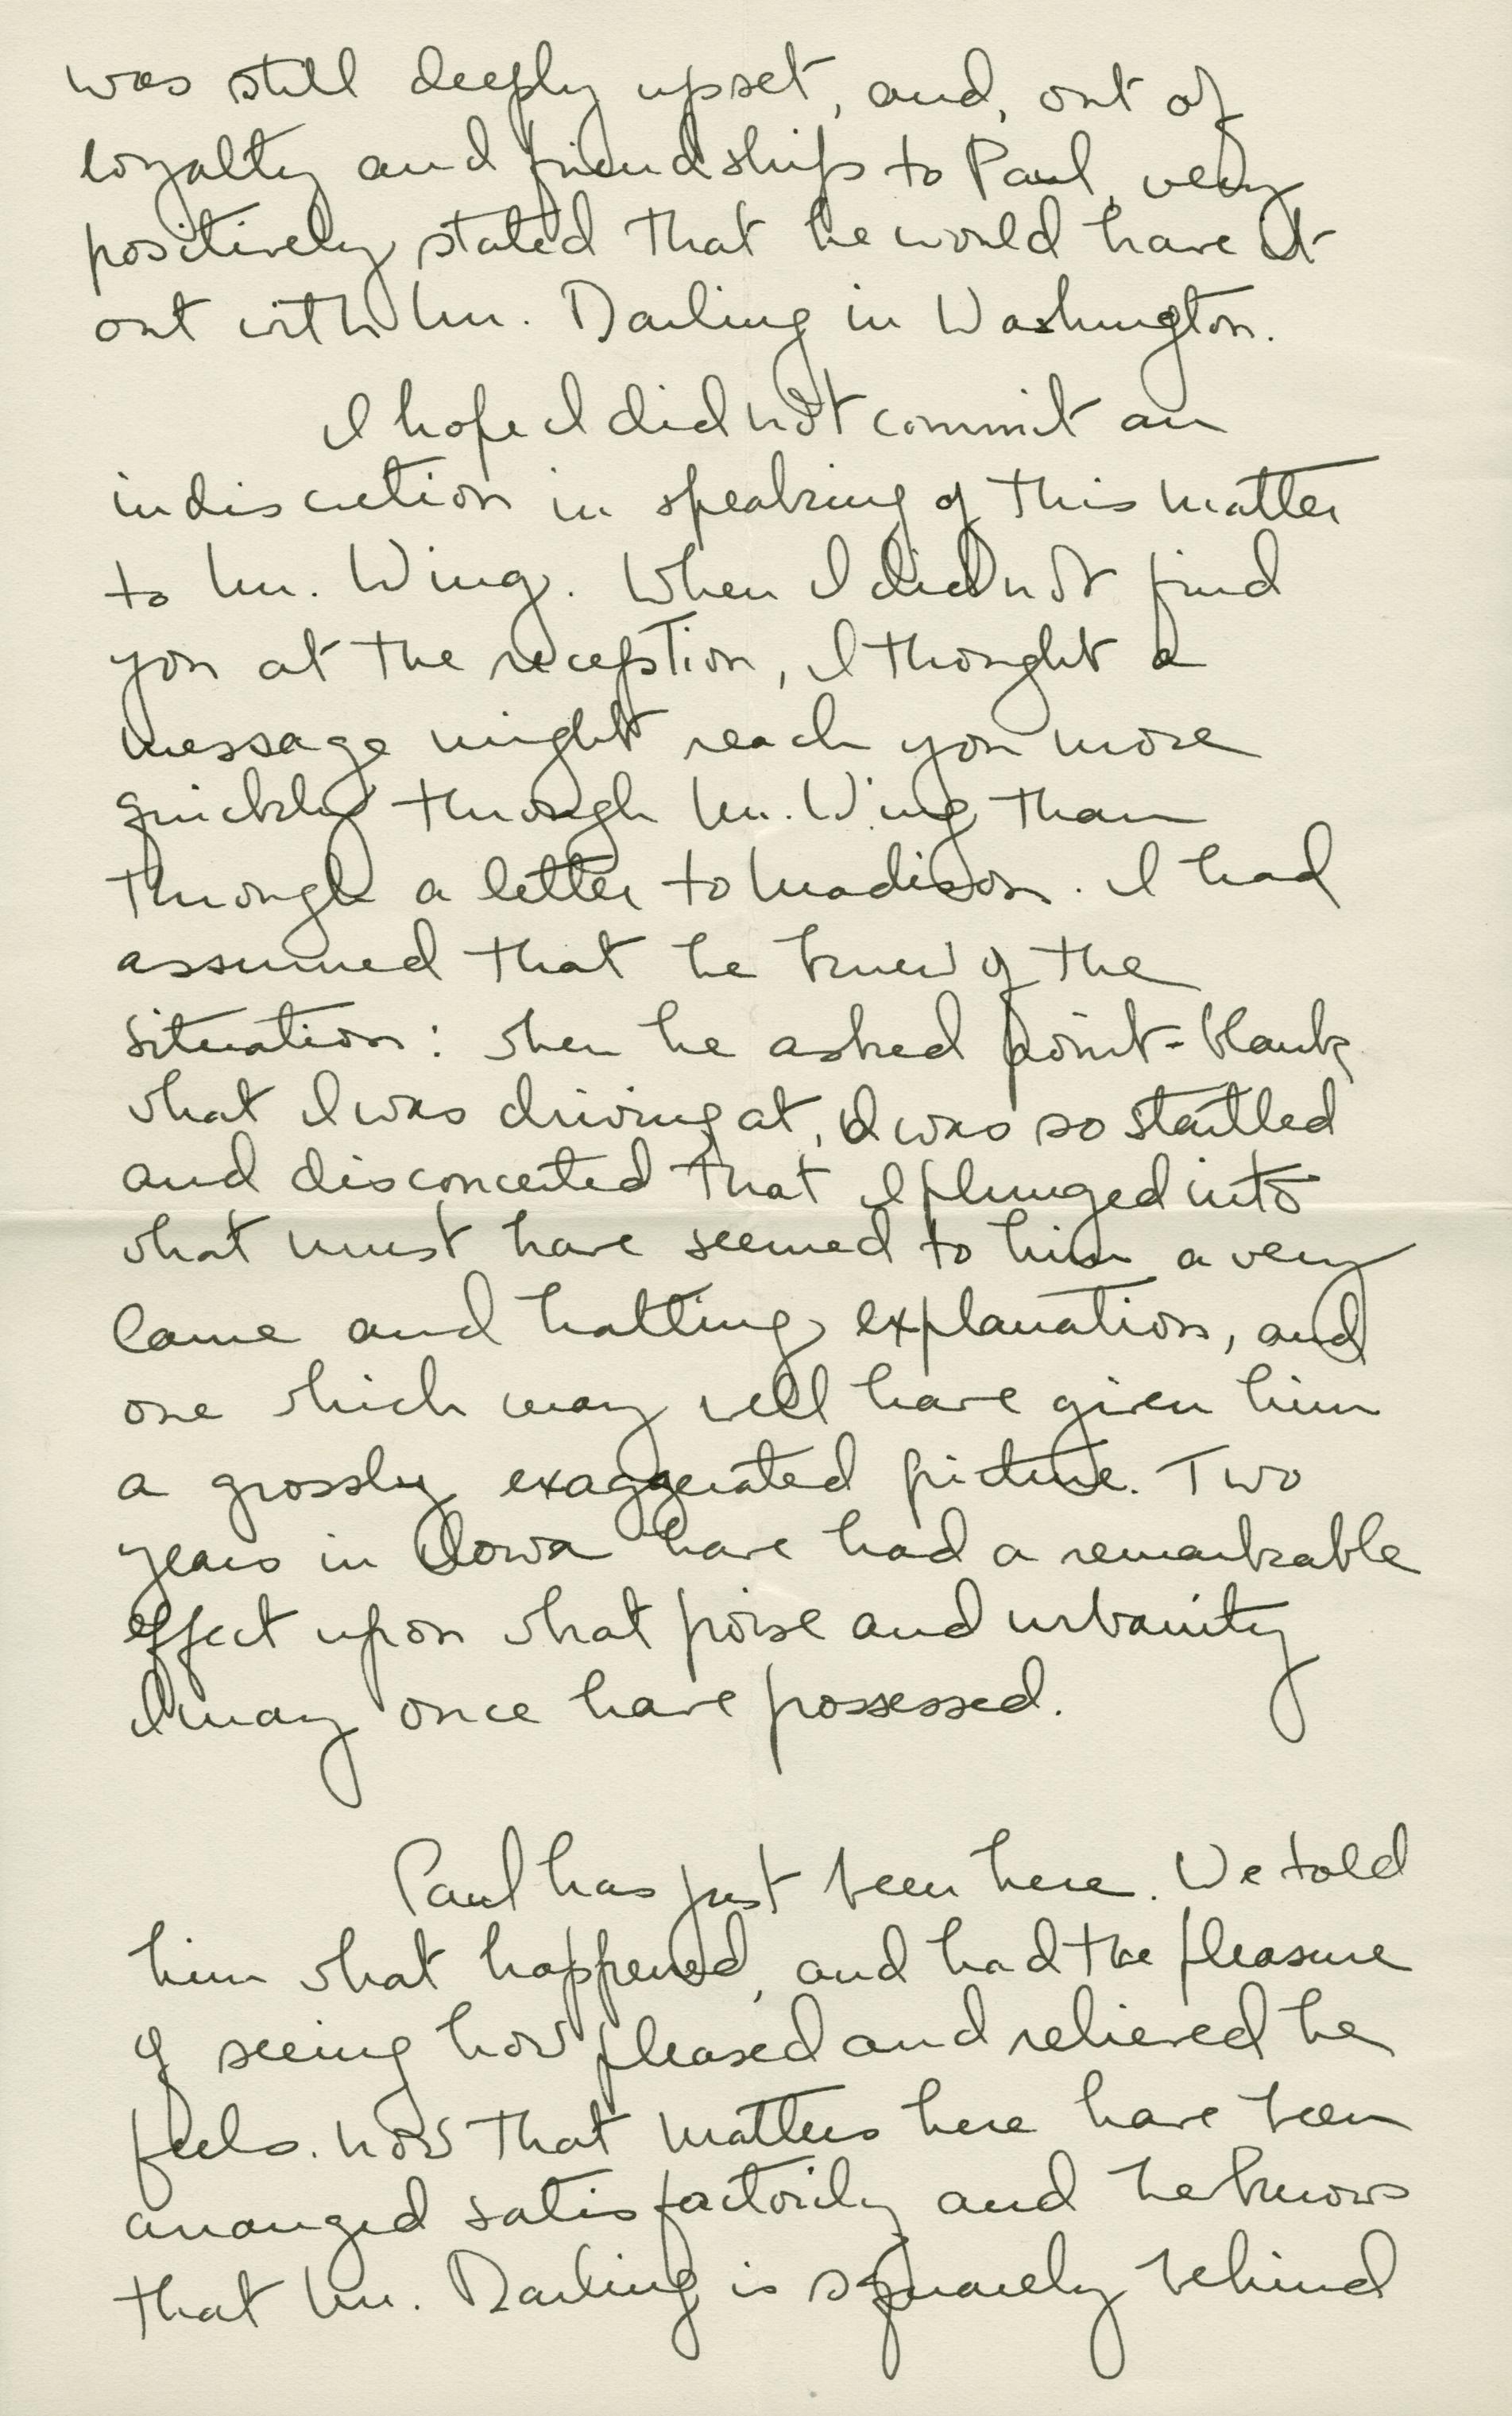 was still deeply upset, and, out of
loyalty and friendship to Paul, very
positively stated that he would have it
out with Mr. Darling in Washington.
I hope I did not commit an
indiscretion in speaking of this matter
to Mr. Wing. When I did not find
you at the reception, I thought a
message might reach you more
quickly through Mr. Wing than
through a letter to Madison. I had
assumed that he knew of the
situation: when he asked point-blank
what I was driving at, I was so startled
and disconcerted that I plunged into
what must have seemed to him a very
lame and halting explanation, and
one which may well have given him
a grossly exaggerated picture. Two
years in Iowa have had a remarkable
effect upon what poise and urbanity
I may once have possessed.
Paul has just been here. We told
him what happened, and had the pleasure
of seeing how pleased and relieved he
feels. Now that matters here have been
arranged satisfactorily and he knows
that Mr. Darling is squarely behind